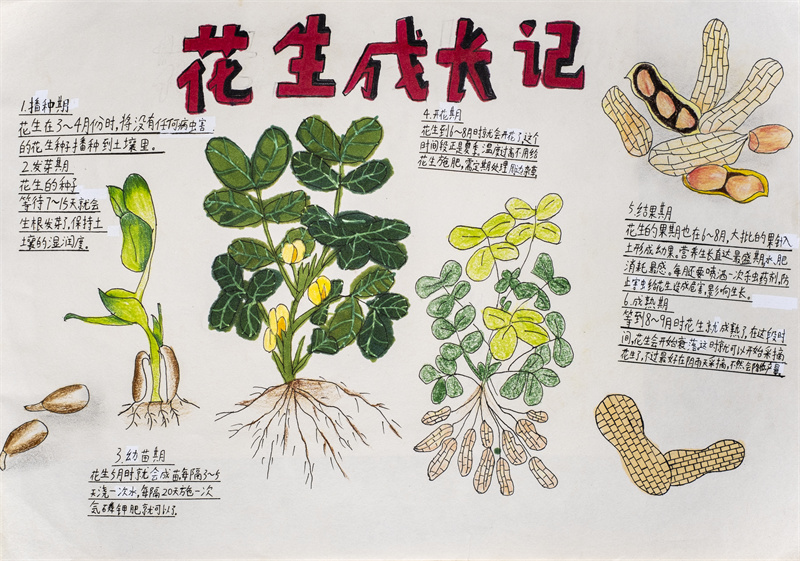 花生成长记
1.播种期
花生在3~4月份时,将没有任何病虫害
的花生种子播种到土壤里。
2.发芽期
花生的种子
等待7~15天就会
生根发芽了,保持土
壤的湿润度。
3.幼苗期
花生5月时就会成苗,每隔3~5
天浇一次水,每隔20天施一次
氮磷钾肥就可以了。
4.开花期
花生到6~8月时就会开花了,这个
时间段正是夏季,温度过高不用给
花生施肥,需定期处理杂草。
5.结果期
花生的果期也在6~8月,大批的果针入
土形成幼果。营养生长直达最盛期,水、肥
消耗最感。每月还要喷洒一次杀虫药剂,防
止害虫给花生造成危害,影响生长。
6.成熟期
等到8~9月时花生就成熟了,在这段时
间,花生会开始衰落,这时就可以开始采摘
花生了,不过最好在阴雨天采摘,不然会降低产量。